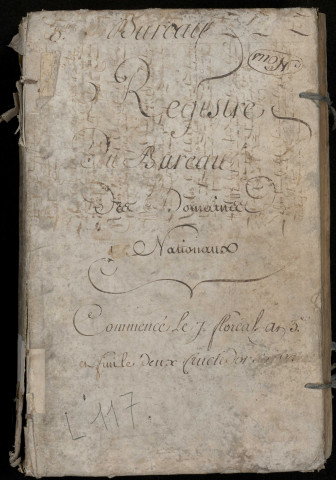 Bureau
Registre
Du Bureau
Des Domaines
Nationaux
Commencé Le 1. floréal an 3.
et fini le deux fructidor
L 117.